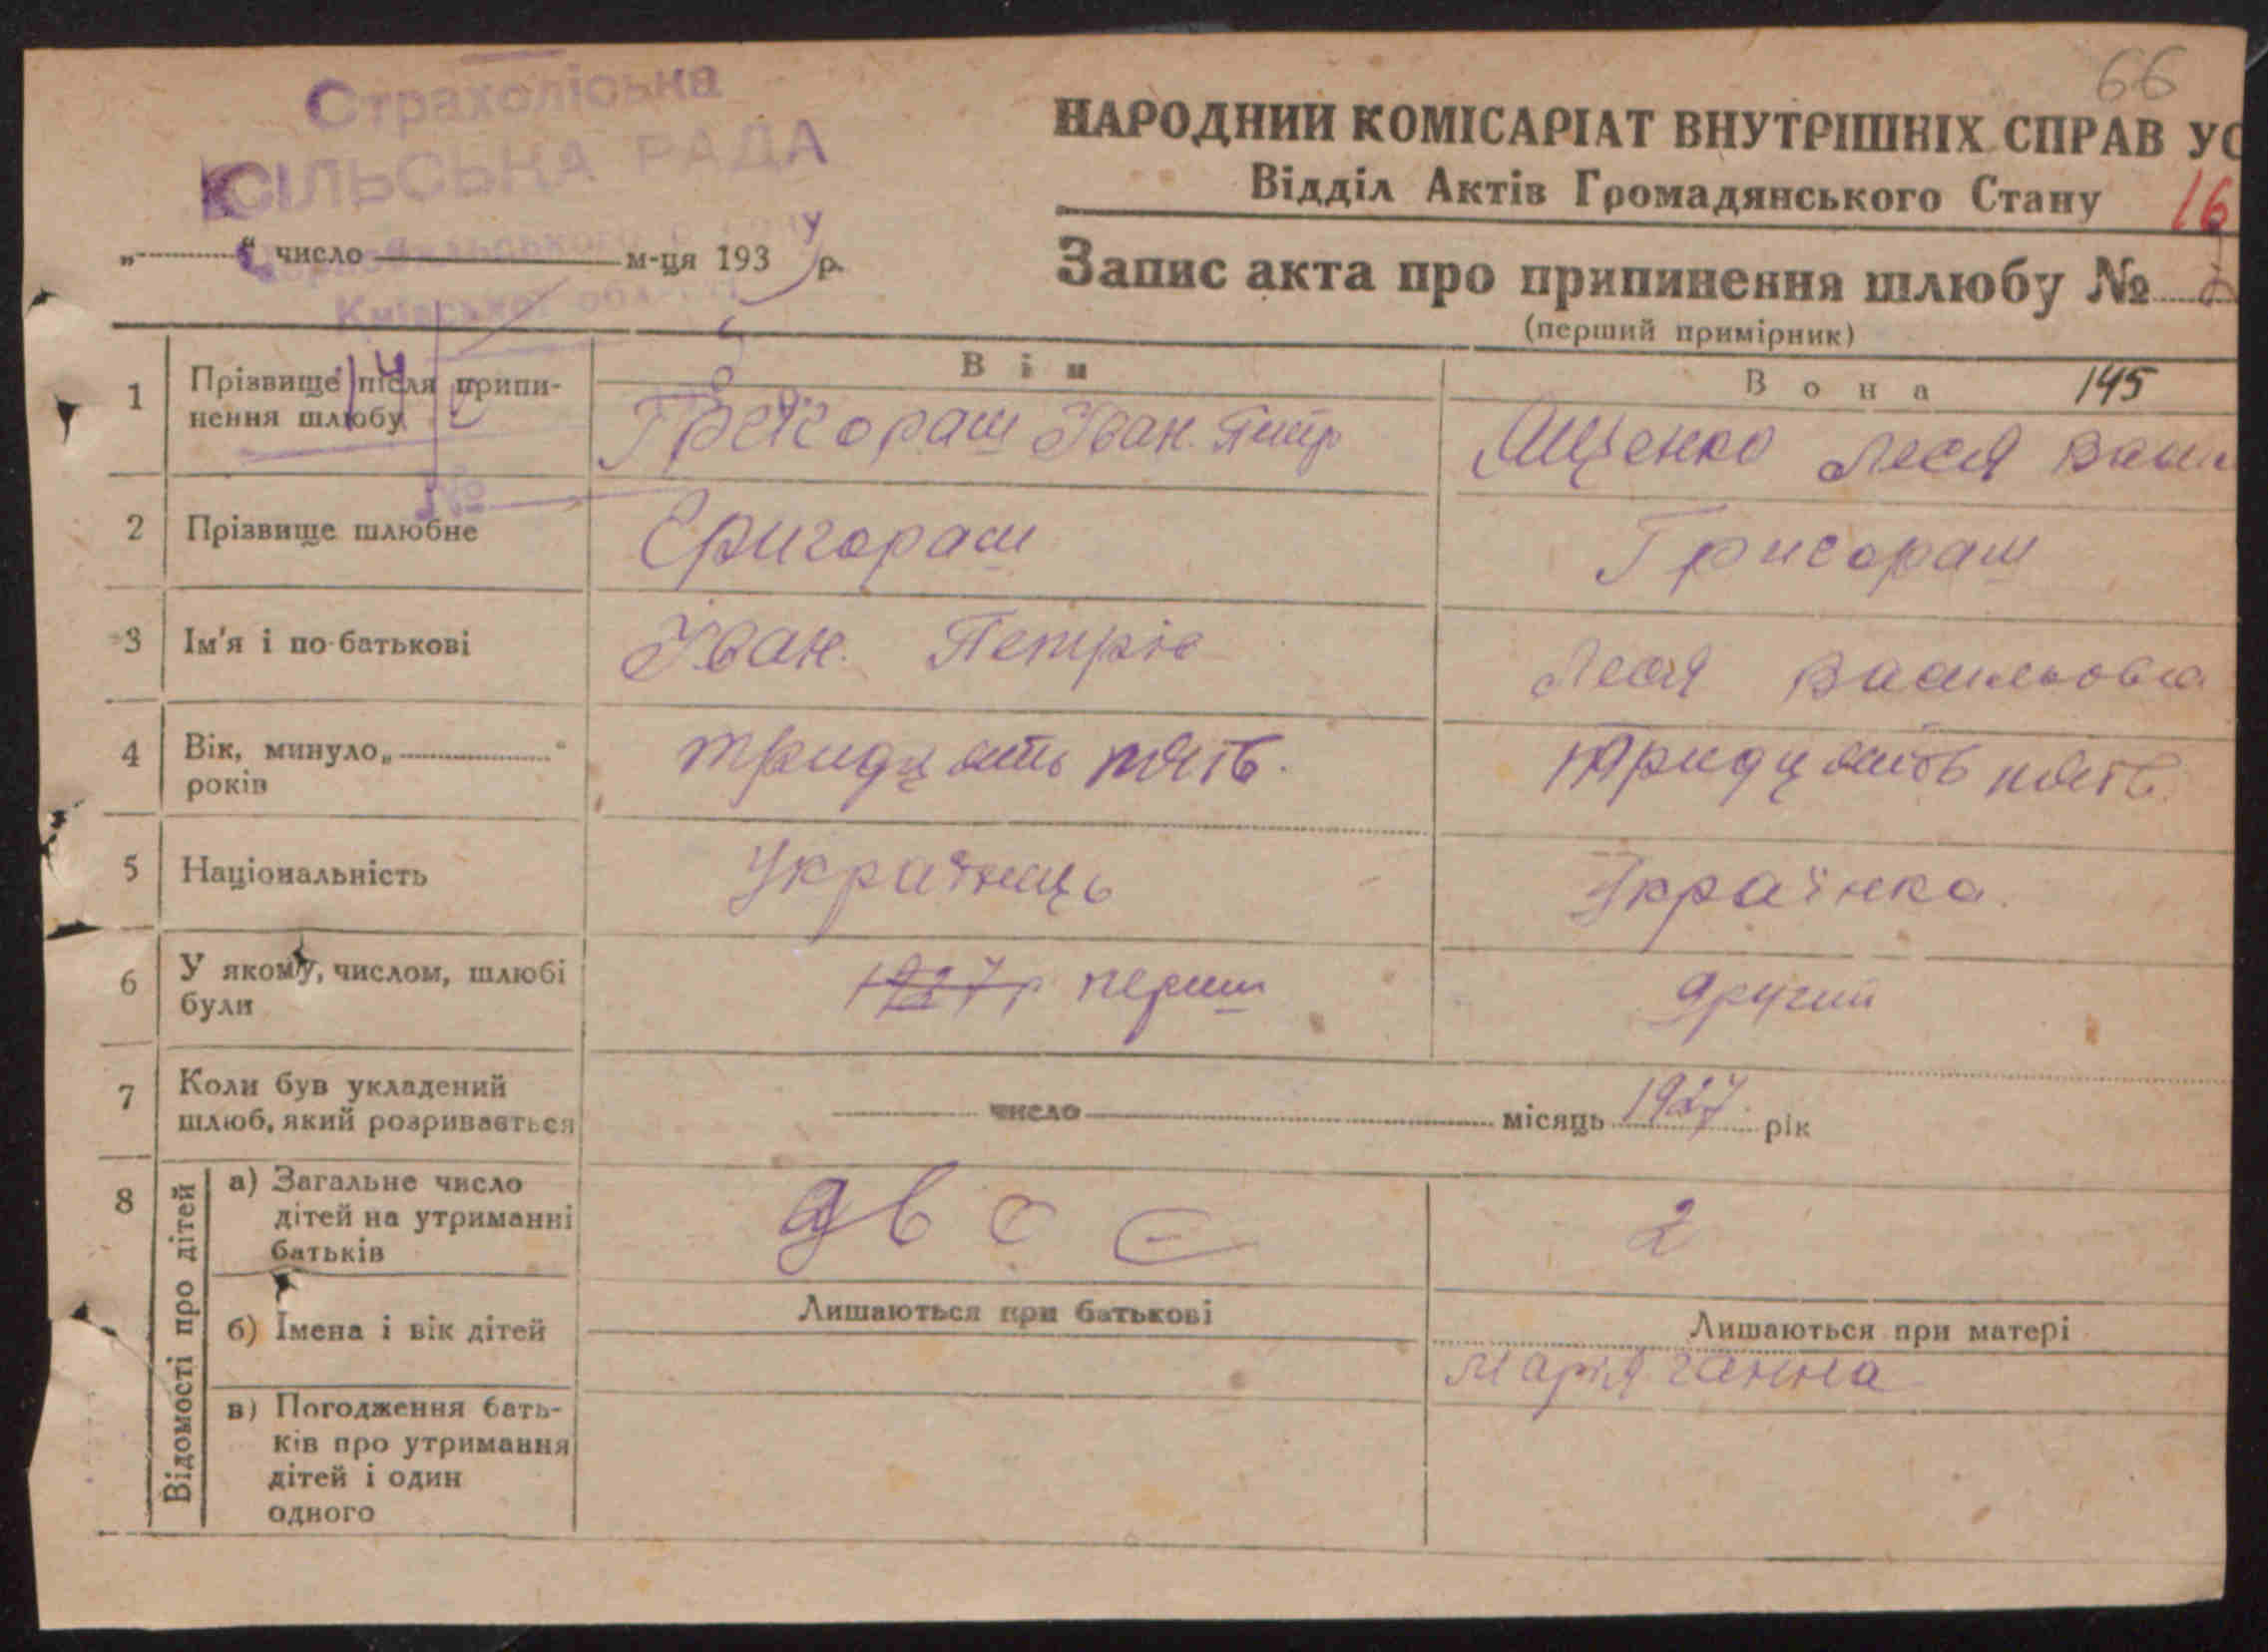 66
Страхоліська
СІЛЬСЬКА РАДА
Чорнобильського району
Київської області
№
НАРОДНИЙ КОМІСАРІАТ ВНУТРІШНІХ СПРАВ УС
Відділ Актів Громадянського Стану
16
„ “ число м-ця 193 р.
Запис акта про припинення шлюбу №
(перший примірник)
Він
Вона 145
1 Прізвище після припи-
нення шлюбу
Григораш Іван Петр
Ященко Леся Васи
2 Прізвище шлюбне
Григораш
Григораш
3 Ім'я і по-батькові
Іван. Петрів
Леся Васильовна
4 Вік, минуло „ “
років
тридцять пять.
тридцять пять.
5 Національність
Українець
Українка.
6 У якому, числом, шлюбі
були
1927р перши
другий
7 Коли був укладений
шлюб, який розривається
число місяць 1927 рік
8 Відомості про дітей
а) Загальне число
дітей на утриманні
батьків
двоє
2
б) Імена і вік дітей
Лишаються при батькові
Лишаються при матері
Марія ганна
в) Погодження бать-
ків про утримання
дітей і один
одного